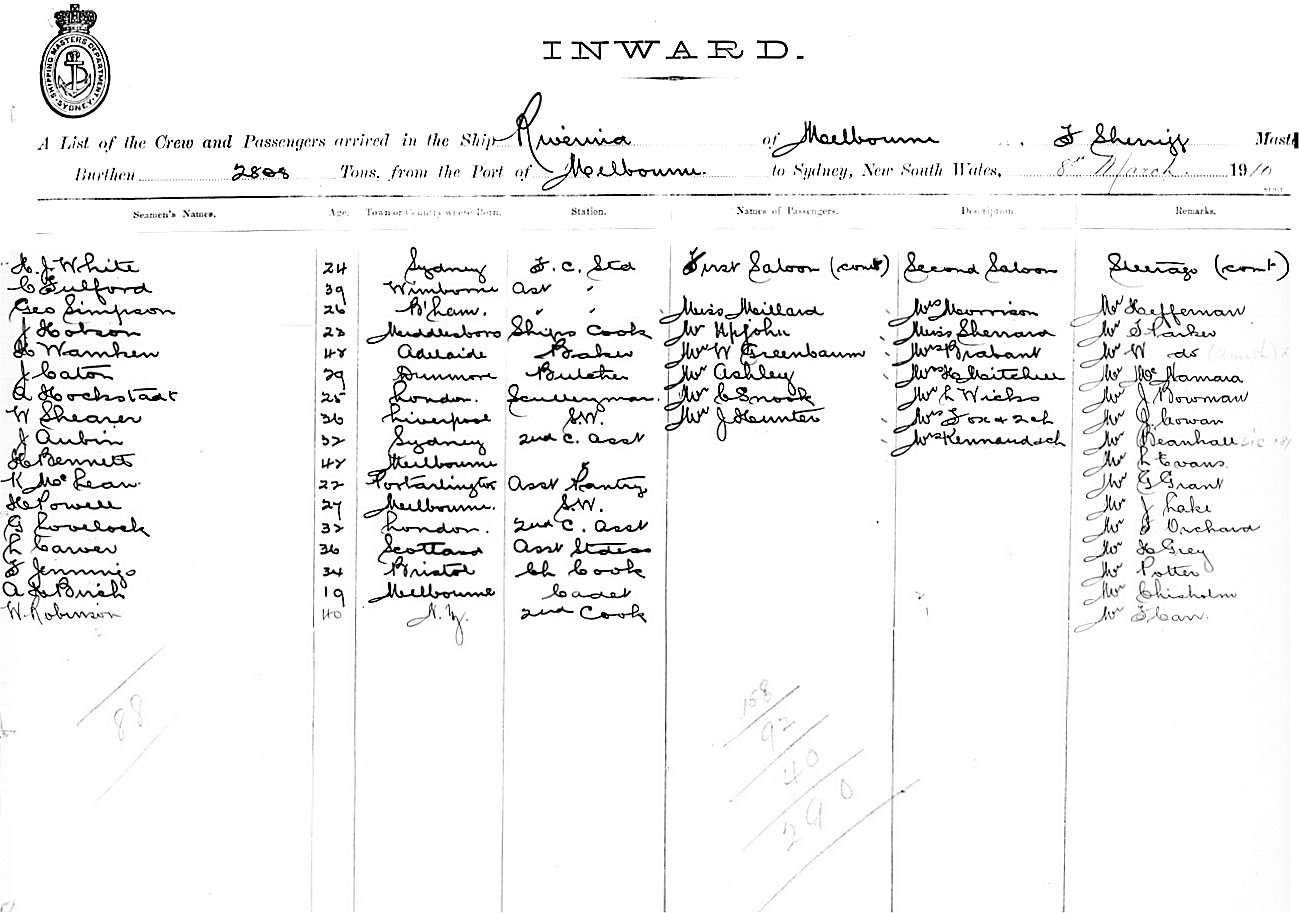 SHIPPING MASTERS DEPARTMENT
SYDNEY
INWARD.
A List of the Crew and Passengers arrived in the Ship Riverina of Melbourne F Sherriff Master
Burthen 2808 Tons, from the Port of Melbourne. to Sydney, New South Wales, 8th March 1910
Seamen's Names. Age. Town or Country where Born. Station. Names of Passengers. Description. Remarks.
H. J White 24 Sydney F. C. Std First Saloon (cont) Second Saloon Steerage (cont)
C Fulford 39 Wimborne Ast "
Geo Simpson 26 B'ham. " " Miss Millard Mrs Morrison Mr Heffernan
J Hobson 28 Middlesboro Ships Cook Mr Upjohn Miss Sherrard Mr F Parker
H Wamken 48 Adelaide Baker Mr W Greenbaum Mrs Brabant Mr W do
J Caton 29 Dunmore Butcher Mr Ashley Mrs H Maitchell Mr McNamara
A Hockstadt 25 London. Sculleryman. Mr C Snook Mr L Wicks Mr J Bowman
W Shearer 36 Liverpool S.W. Mr J Hunter Mrs Fox & 2 ch Mr J Cowan
J Aubin 32 Sydney 2nd C. Asst Mrs Kennand & ch Mr Deanhall
H Bennett 42 Melbourne " Mr L Evans.
K McLean. 22 Portarlington Asst Pantry Mr G Grant
H Powell 27 Melbourne. S.W. Mr J Lake
G Lovelock 32 London. 2nd C. Asst Mr F Orchard
L Carver 36 Scotland Asst Stdess Mr H Grey
F Jennings 34 Bristol Ch Cook Mr Potter
A L Birch 19 Melbourne Cadet 2 Mr Chisholm
W. Robinson 40 N.Z. 2nd Cook 1 Mr F Carr.
88
158
92
40
290